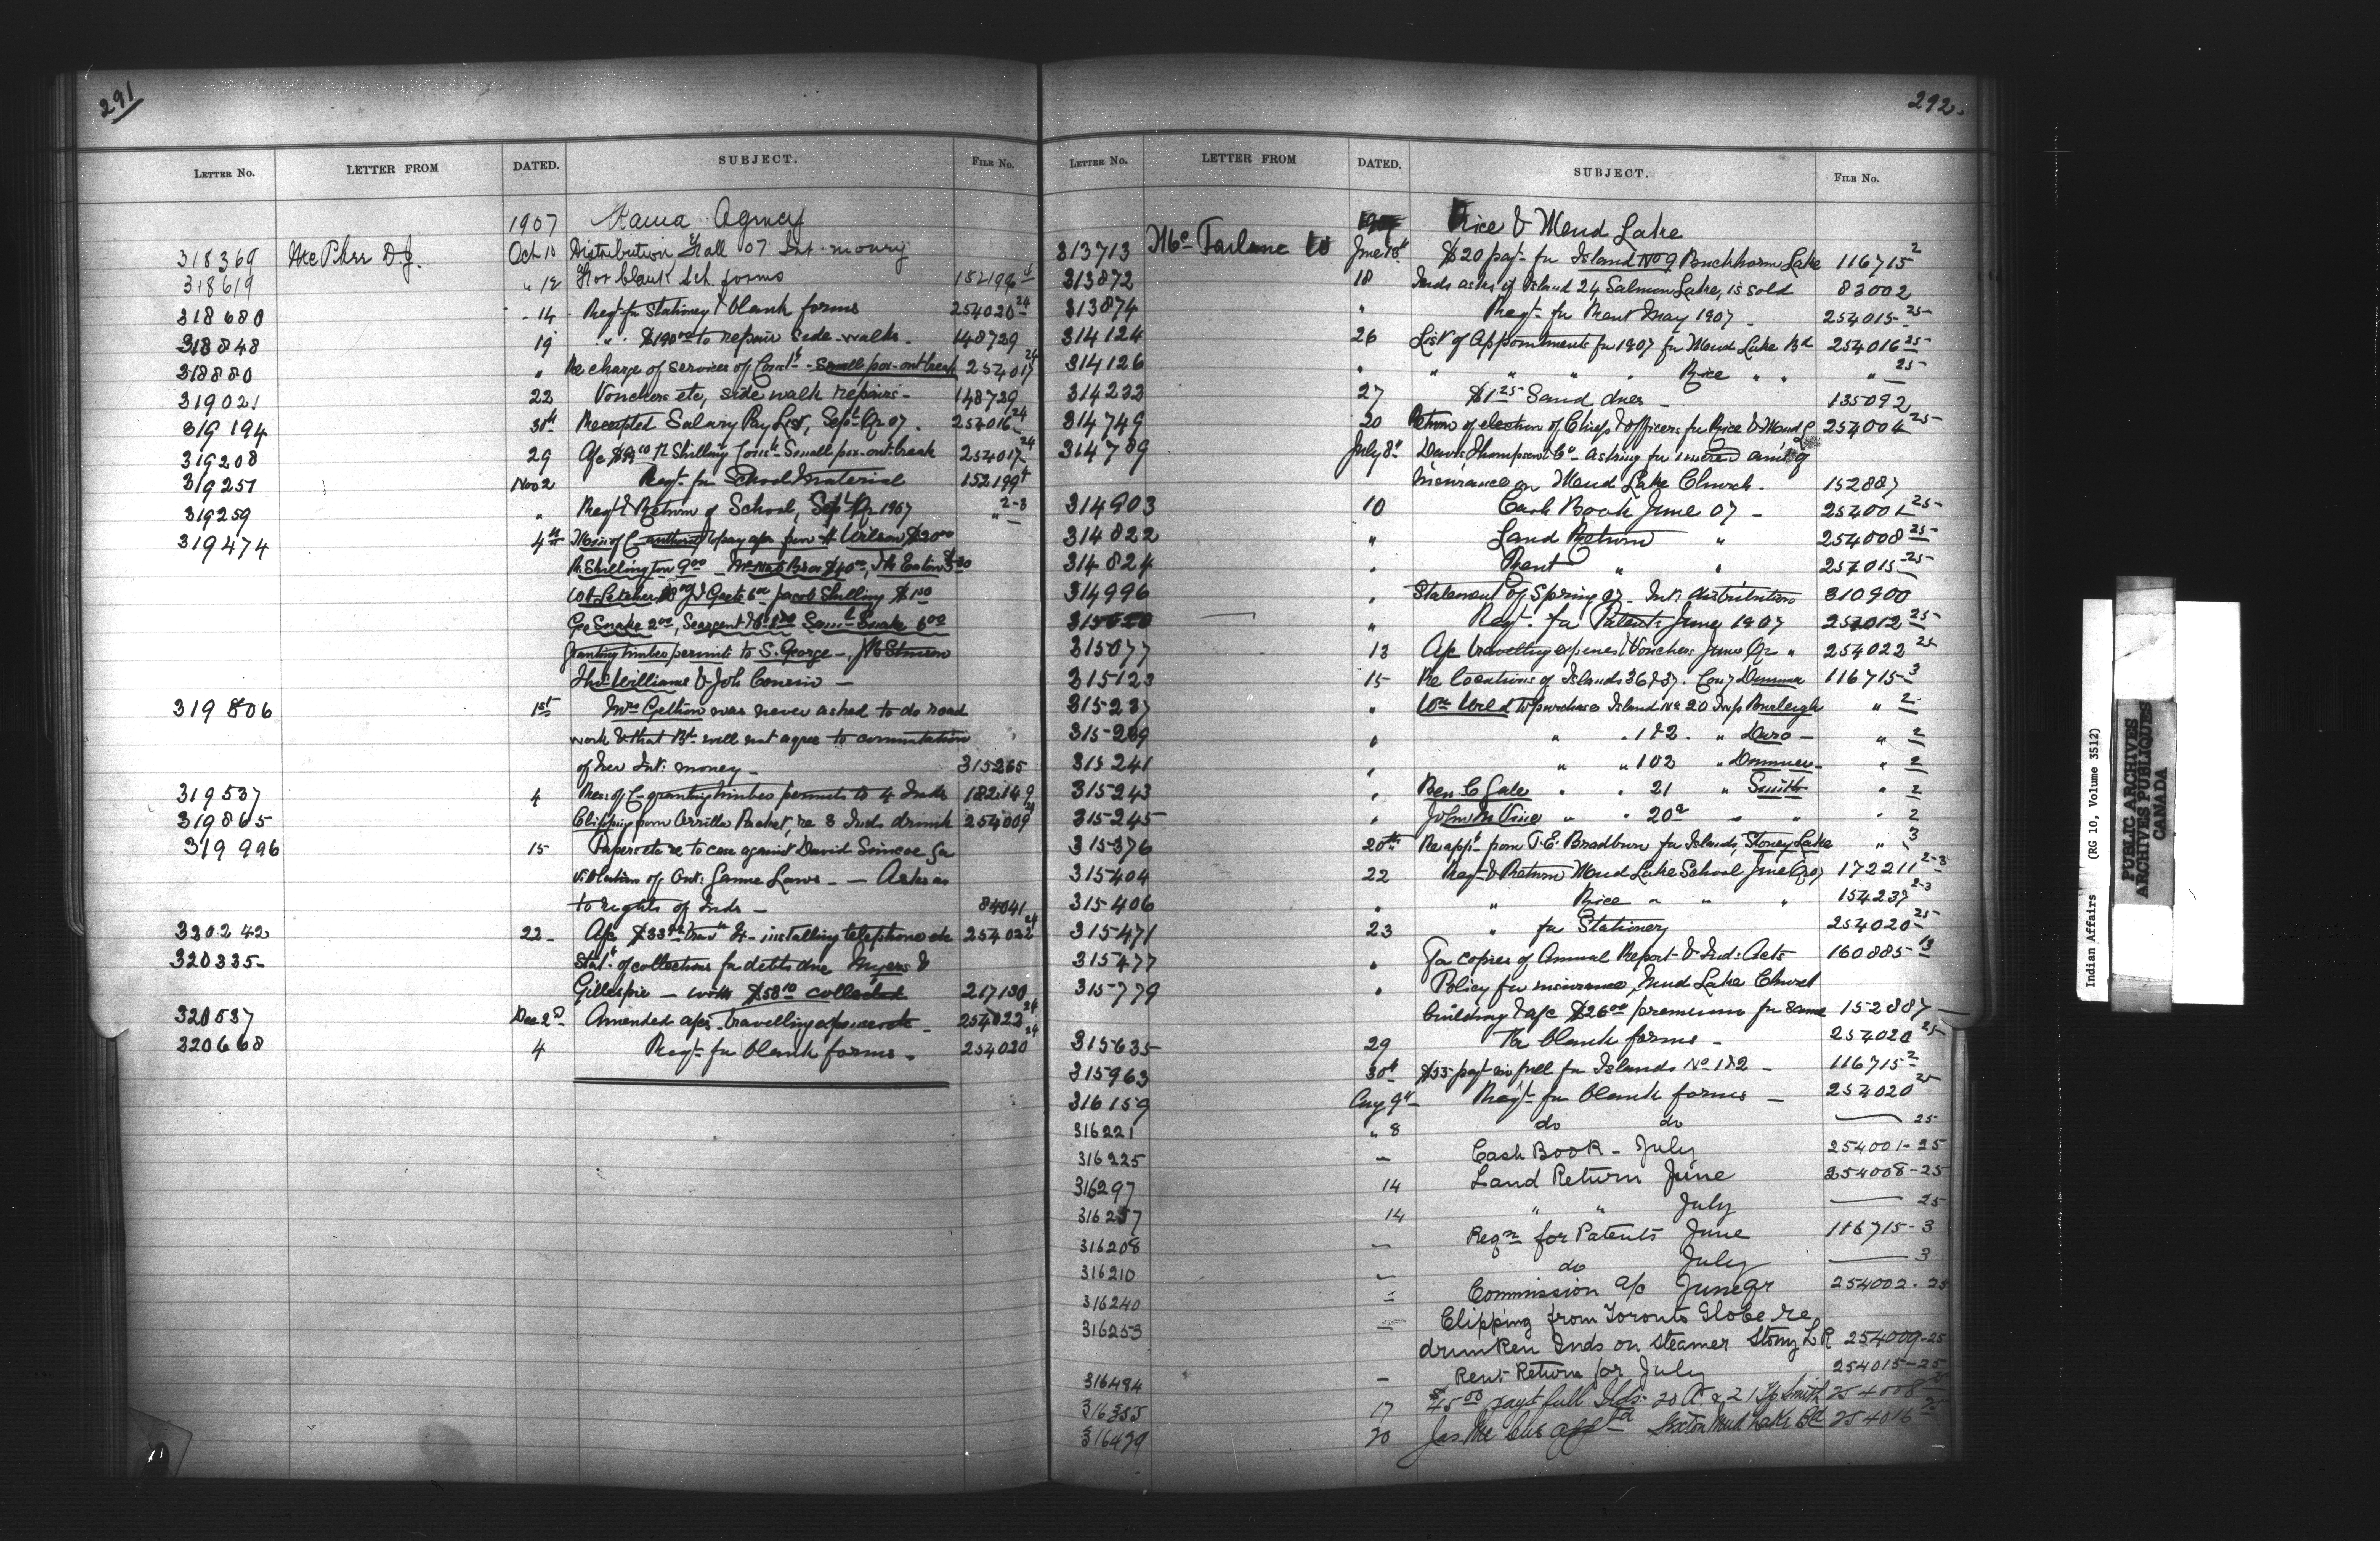 291
LETTER NO. LETTER FROM DATED. SUBJECT. FILE NO.
1907 Rama Agency
318369 McPhee D.J. Oct 10 Distribution Fall 07 Int. money
318619 " 12 For blank Sch. forms 152199
318680 - 14 Reqt fr Stationery & blank forms 254020 24
318848 19 " to repair side-walks - 148729
318880 " Re charge of services of Const - Small pox-outbreak 254017 24
319021 22 Vouchers etc, side walk repairs - 148729
319194 30th Receipted Salary Pay List, Sept Qr 07. 254016 24
319208 29 a/c Shilling Const Small pox-outbreak 254017 24
319251 Nov 2 Reqt fr School Material 152199
319259 " Reqt & Return of School, Sept Qr 1907 " 2-3
319474 4th of C authority to pay a/cs Wilson $20 00
Shillington 9 00 Bros $40 00, Eaton
Letcher Goetz Jacob Shilling
Geo Snake 2 00, Seargent Saml Snake 6 00
Granting timber permits to S. George -
Thos Williams & Joh Cousin -
319806 1st Mrs Gettion was never asked to do road
work & that Bd will not agree to commutation
of her Int: money - 315265
319537 4 Res of C - granting timber permits to 4 Inds 182149
319865 Clipping from Orillia Packet, re 3 Inds drunk 254009 24
319996 15 Papers etc re to case against David Simcoe for
violation of Ont: Game Laws - - Asks as
to rights of Inds - 84041
320242 22 - a/c installing telephone etc 254022 24
320335 - Stat. of collections for debts due Myers &
Gillespie - with $58 10 collected 217130
320537 Dec 2nd Amended a/cs - travelling expenses etc - 254022 24
320668 4 Reqt fr blank forms - 254020 24
292.
LETTER NO. LETTER FROM DATED. SUBJECT. FILE NO.
Rice & Mud Lake
313713 McFarlane June 18th $20 payt fr Island No 9 Buckhorn Lake 116715 2
313872 18 Inds asks if Island 24, Salmon Lake, is sold 83002
313874 " Reqt fr Rent May 1907 - 254015 - 25
314124 26 List of Appointments fr 1907 fr Mud Lake Bd 254016 25
314126 " " " " " Rice " " " 25
314232 27 $1 25 Sand dues - 135092
314749 20 Return of election of Chiefs & Officers fr Rice & Mud L 254004 25
314789 July 8th Thompson & Co - asking for amt of
insurance on Mud Lake Church - 152887
314903 10 Cash Book June 07 - 254001 25
314822 " Land Return " 254008 25
314824 " Rent " " 254015 25
314996 " Statement of Spring 07 - Int: distribution 310900
" Reqt fr Patents June 1907 254012 25
315077 13 a/c travelling expenses & Vouchers June Qr " 254022 25
315123 15 Re locations of Islands 36 & 37. Con 7 Dummer 116715 - 3
315237 " Wm Weld to purchase Island No 20 Twp Burleigh " 2
315239 " " " 1 & 2. " Douro - " 2
315241 " " " 102 " Dummer - " 2
315243 " Ben C Gale " " 21 " Smith " 2
315245 " John M Vine " " 20a " " " 2
315376 20th Re appn from T.E. Bradburn fr Islands, Stoney Lake " 3
315404 22 Reqt & Return Mud Lake School June Qr 07 172211 2-3
315406 " " Rice " " " 154237 2-3
315471 23 " fr Stationery 254020 25
315477 " For copies of Annual Report & Ind: Acts 160885
315779 " Policy for insurance, Mud Lake Church
building & a/c $26 00 premium for same 152887
315635 29 For blank forms - 254020 25
315963 30th $55 payt in full fr Islands No 1 & 2 - 116715 2
316159 Aug 9th Reqt fr blank forms - 254020 25
316221 " 8 do do 25
316225 " Cash Book - July 254001 - 25
316297 14 Land Return June 254008 - 25
316257 14 " " July 25
316208 " Reqn for Patents June 116715 - 3
316210 " do July 3
316240 " Commission a/c June qr 254002 - 25
316253 " Clipping from Toronto Globe re
drunken Inds on steamer Stony L R 254009 - 25
316484 " Rent Return for July 254015 - 25
316355 17 $45 00 payt full Islds. 20 A. & 21 Tp Smith 254008 25
316499 20 Jas McCue appd Sexton Mud Lake Bd 254016 25
Indian Affairs (RG 10, Volume 3512)
PUBLIC ARCHIVES
ARCHIVES PUBLIQUES
CANADA